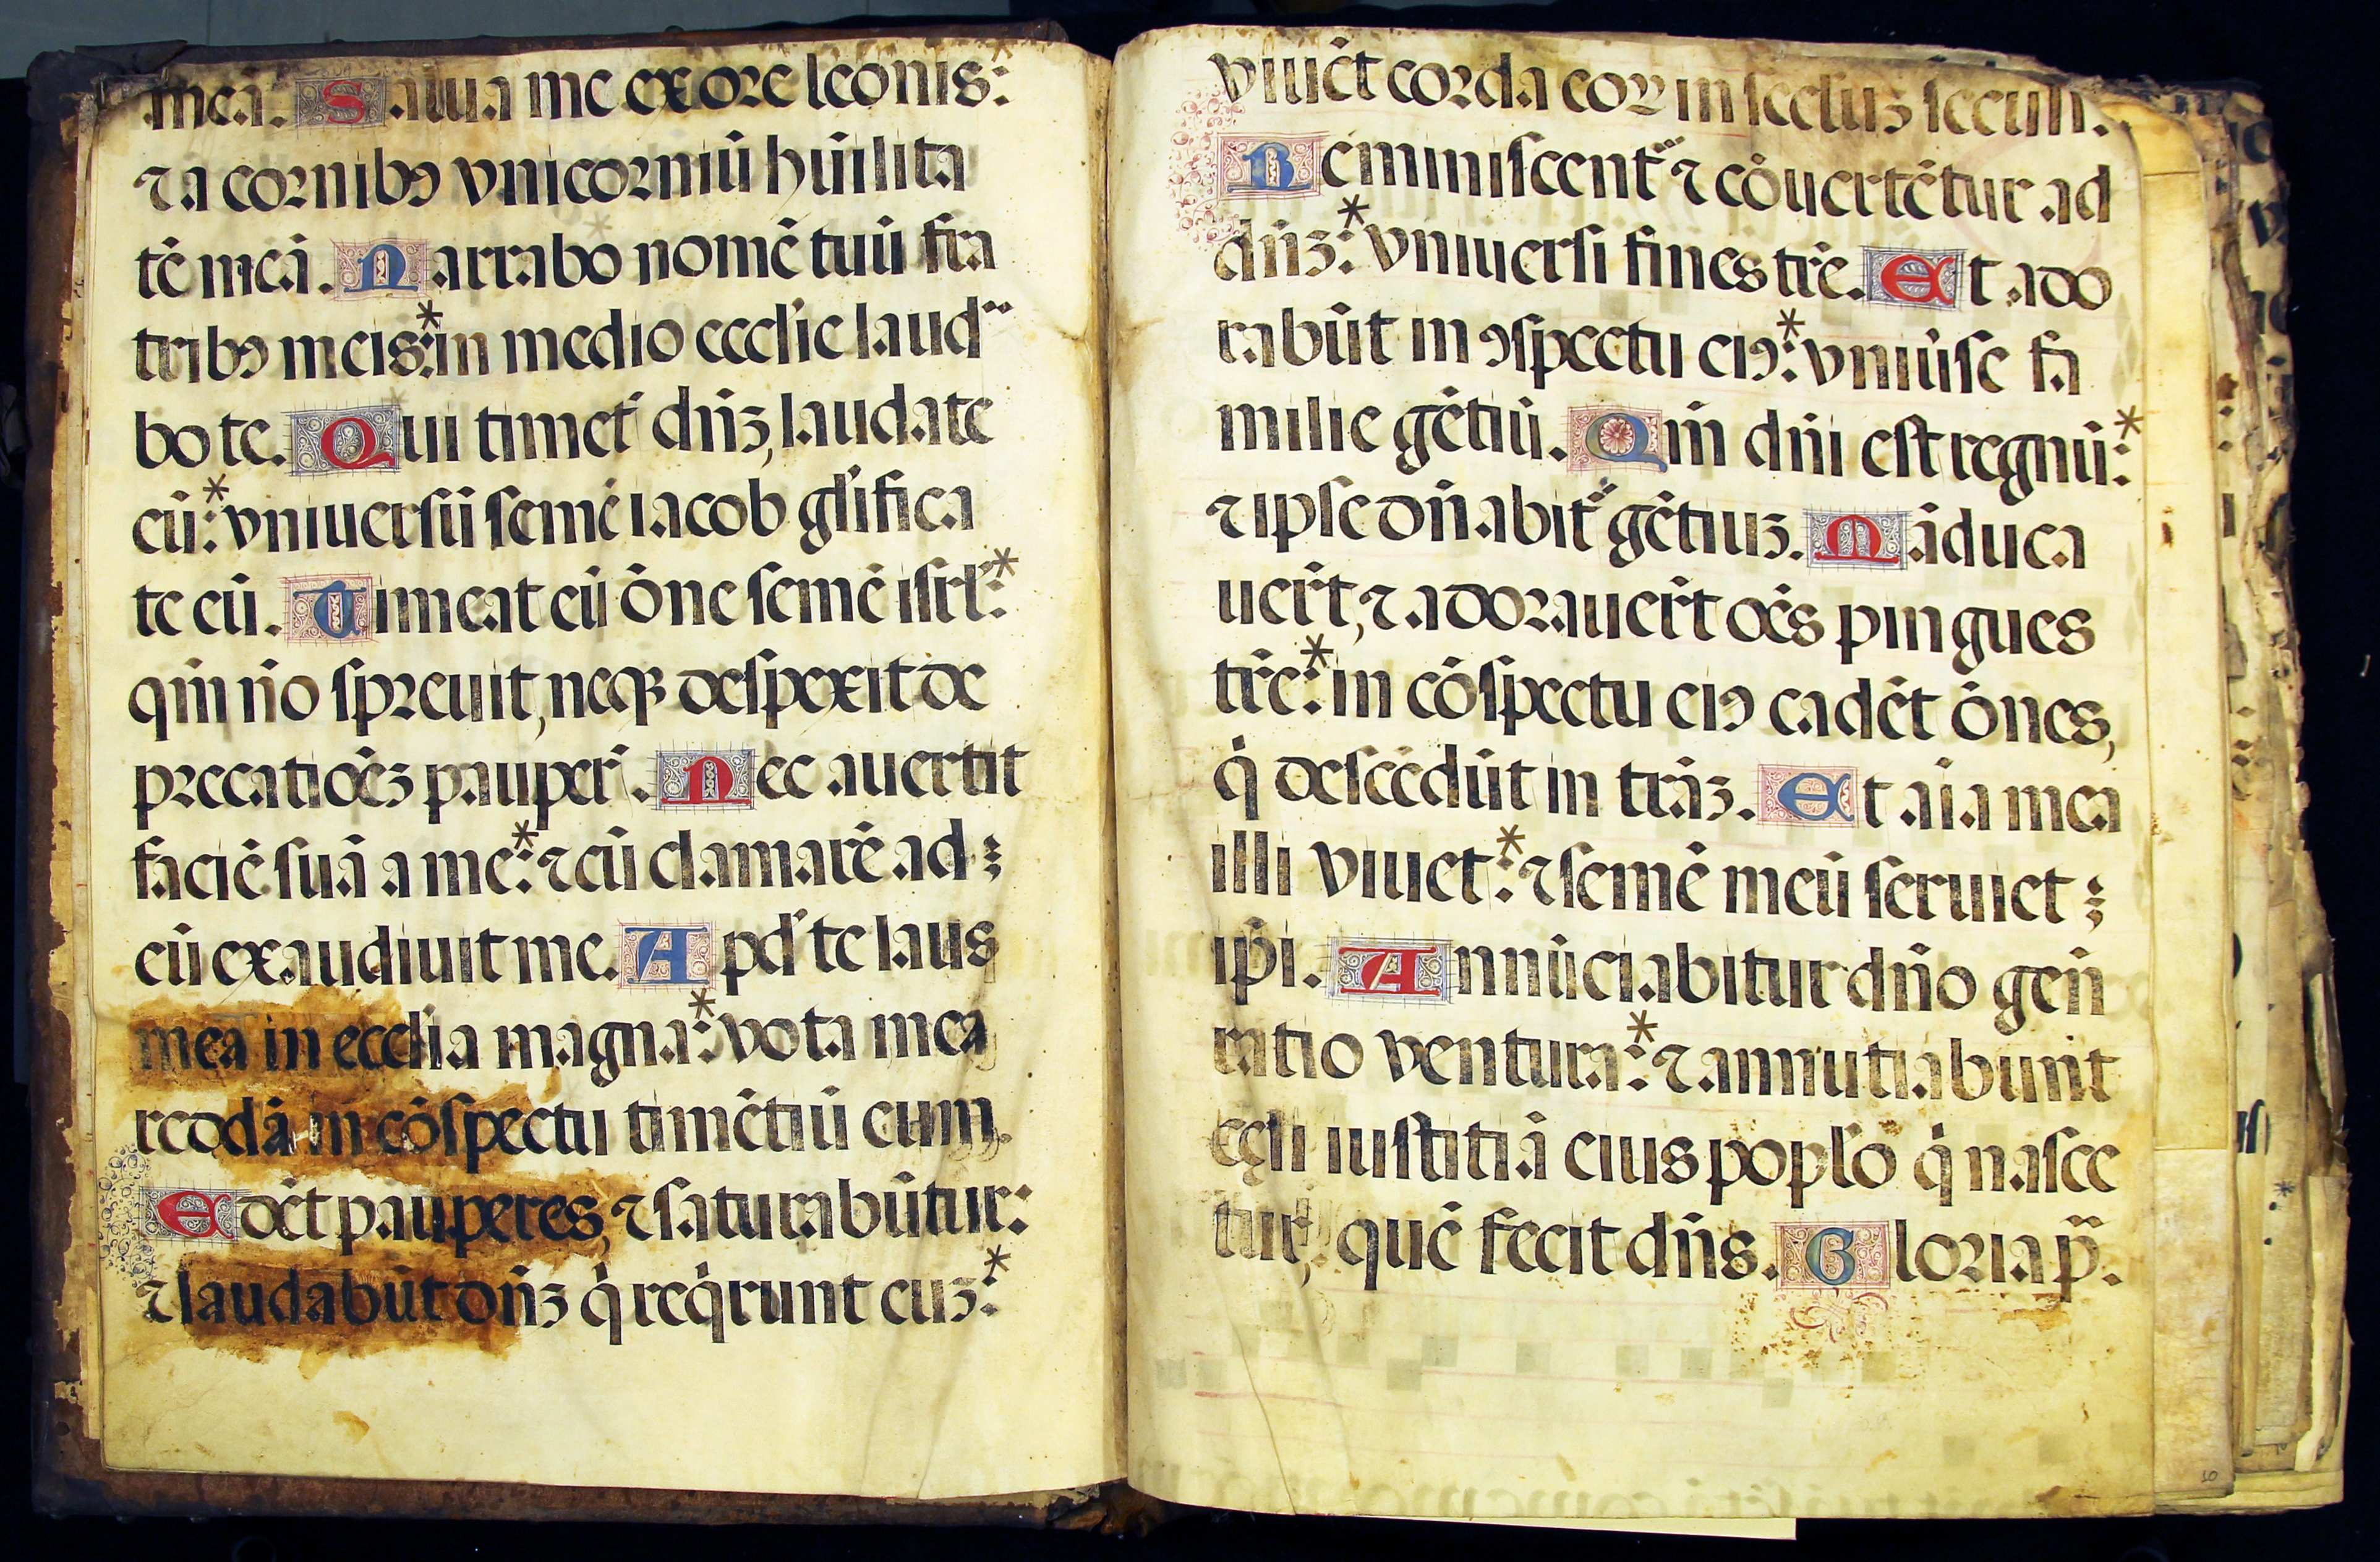 meā. Salua me ex ore leonis:*
⁊ a cornibꝰ vnicorniū hūilita
tē meā. Narrabo nomē tuū fra
tribꝰ meis:* in medio eccl'ie laud
bo te. Qui timet' dn̄ʒ, laudate
eū:* vniuersū semē iacob gl'ifica
te eū. Timeat eū ōne semē isrl':*
qm̄ nō spreuit, neqꝫ despexit de
precatiōeʒ pauper̄. Nec auertit
faciē suā a me:* ⁊ cū clamarē ad
eū exaudiuit me. Apd' te laus
mea in eccl'ia magna:* vota mea
reddā in cōspectu timētiū eum.
Edēt pauperes, ⁊ saturabūtur:
⁊ laudabūt dn̄ʒ q̇ req̇runt euʒ:*
viuēt corda eoꝝ in sc̄cluʒ sc̄culi.
Reminiscent' ⁊ cōuertētur ad
dn̄ʒ:* vniuersi fines tr̄e. Et ado
rabūt in ꝯspectu eiꝰ:* vniūse fa
milie gētiū. Qm̄ dn̄i est regnū:*
⁊ ipse dn̄abit' gētiuʒ. Māduca
uer̄t, ⁊ adorauer̄t oēs pingues
tr̄e:* in cōspectu eiꝰ cadēt ōnes,
q̇ descēdūt in trāʒ. Et aīa mea
illi viuet:* ⁊ semē meū seruiet
ip̄i. Annūciabitur dn̄o gen̄
ratio ventura:* ⁊ annutiabunt
cęli iustitiā eius popl'o q̇ nasce
tur, quē fecit dn̄s. Gloria p̄.
10